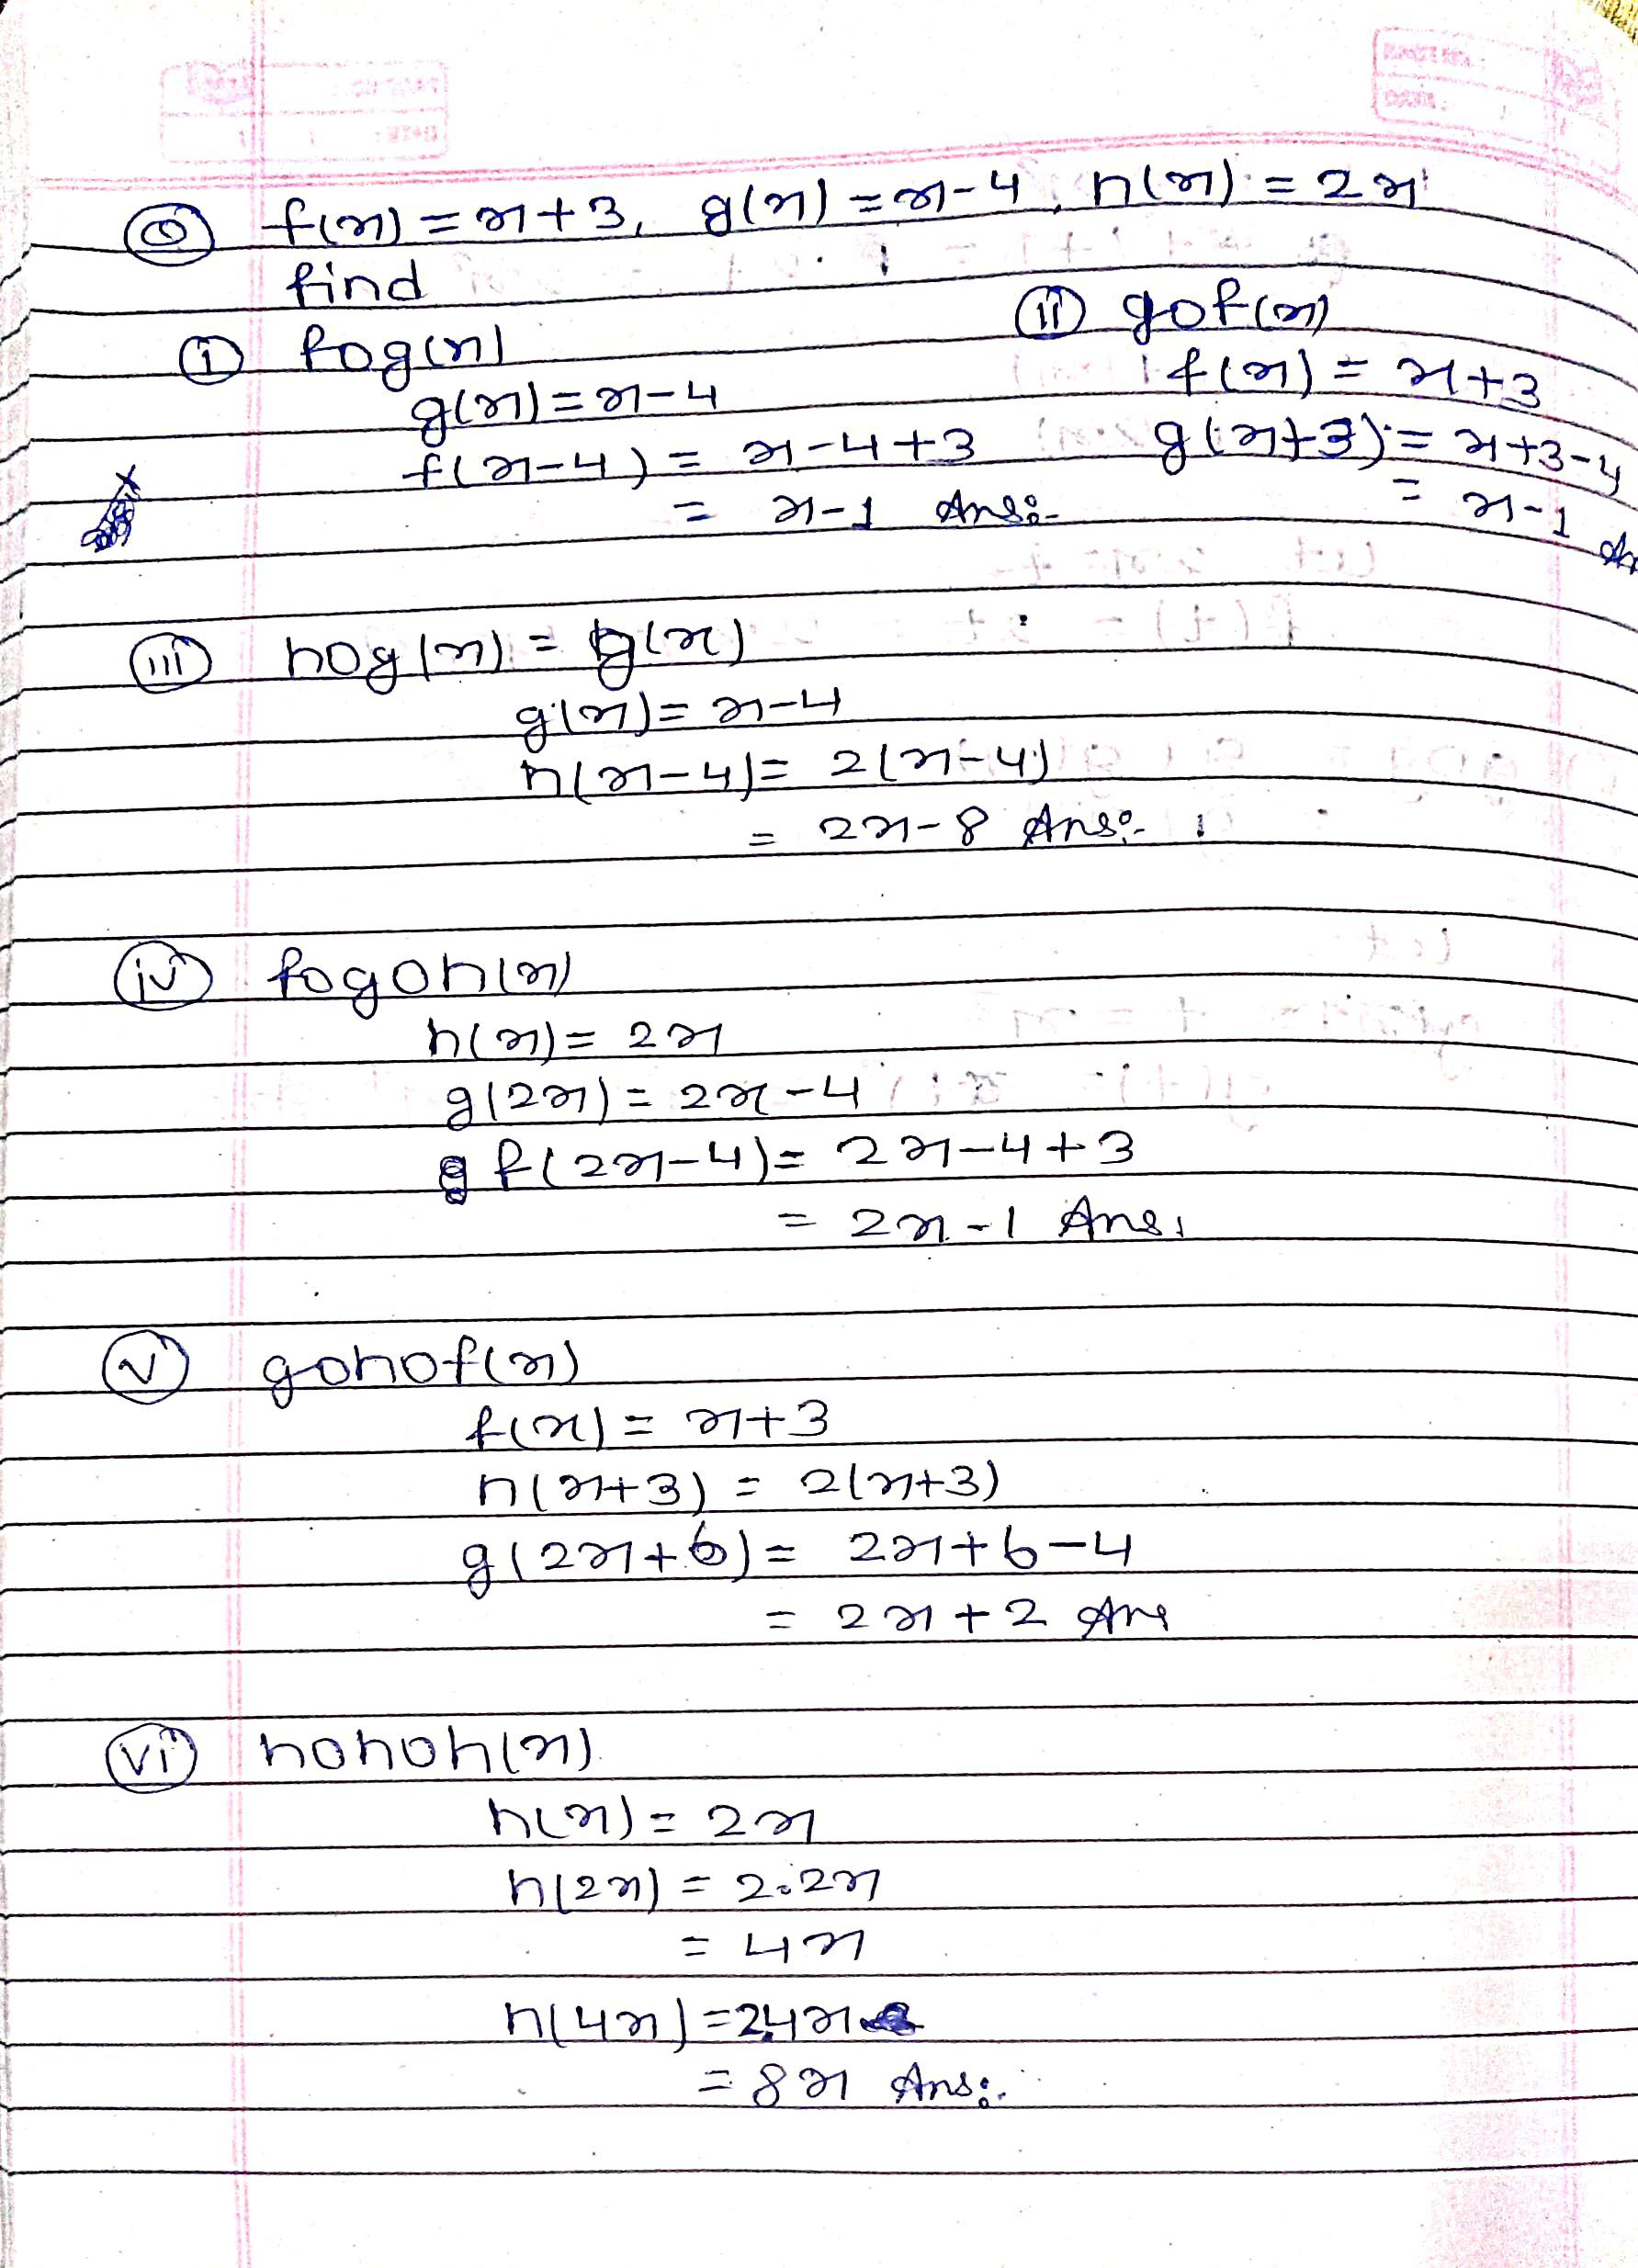 Q f(x) = x+3, g(x) = x-4, h(x) = 2x
find
(i) fog(x)
g(x) = x-4
f(x-4) = x-4+3
= x-1 Ans:-
(ii) gof(x)
f(x) = x+3
g(x+3) = x+3-4
= x-1
(iii) hog(x) = g(x)
g(x) = x-4
h(x-4) = 2(x-4)
= 2x-8 Ans:-
(iv) fogoh(x)
h(x) = 2x
g(2x) = 2x-4
f(2x-4) = 2x-4+3
= 2x-1 Ans.
(v) gohof(x)
f(x) = x+3
h(x+3) = 2(x+3)
g(2x+6) = 2x+6-4
= 2x+2 Ans
(vi) hohoh(x)
h(x) = 2x
h(2x) = 2.2x
= 4x
h(4x) = 2.4x
= 8x Ans:.